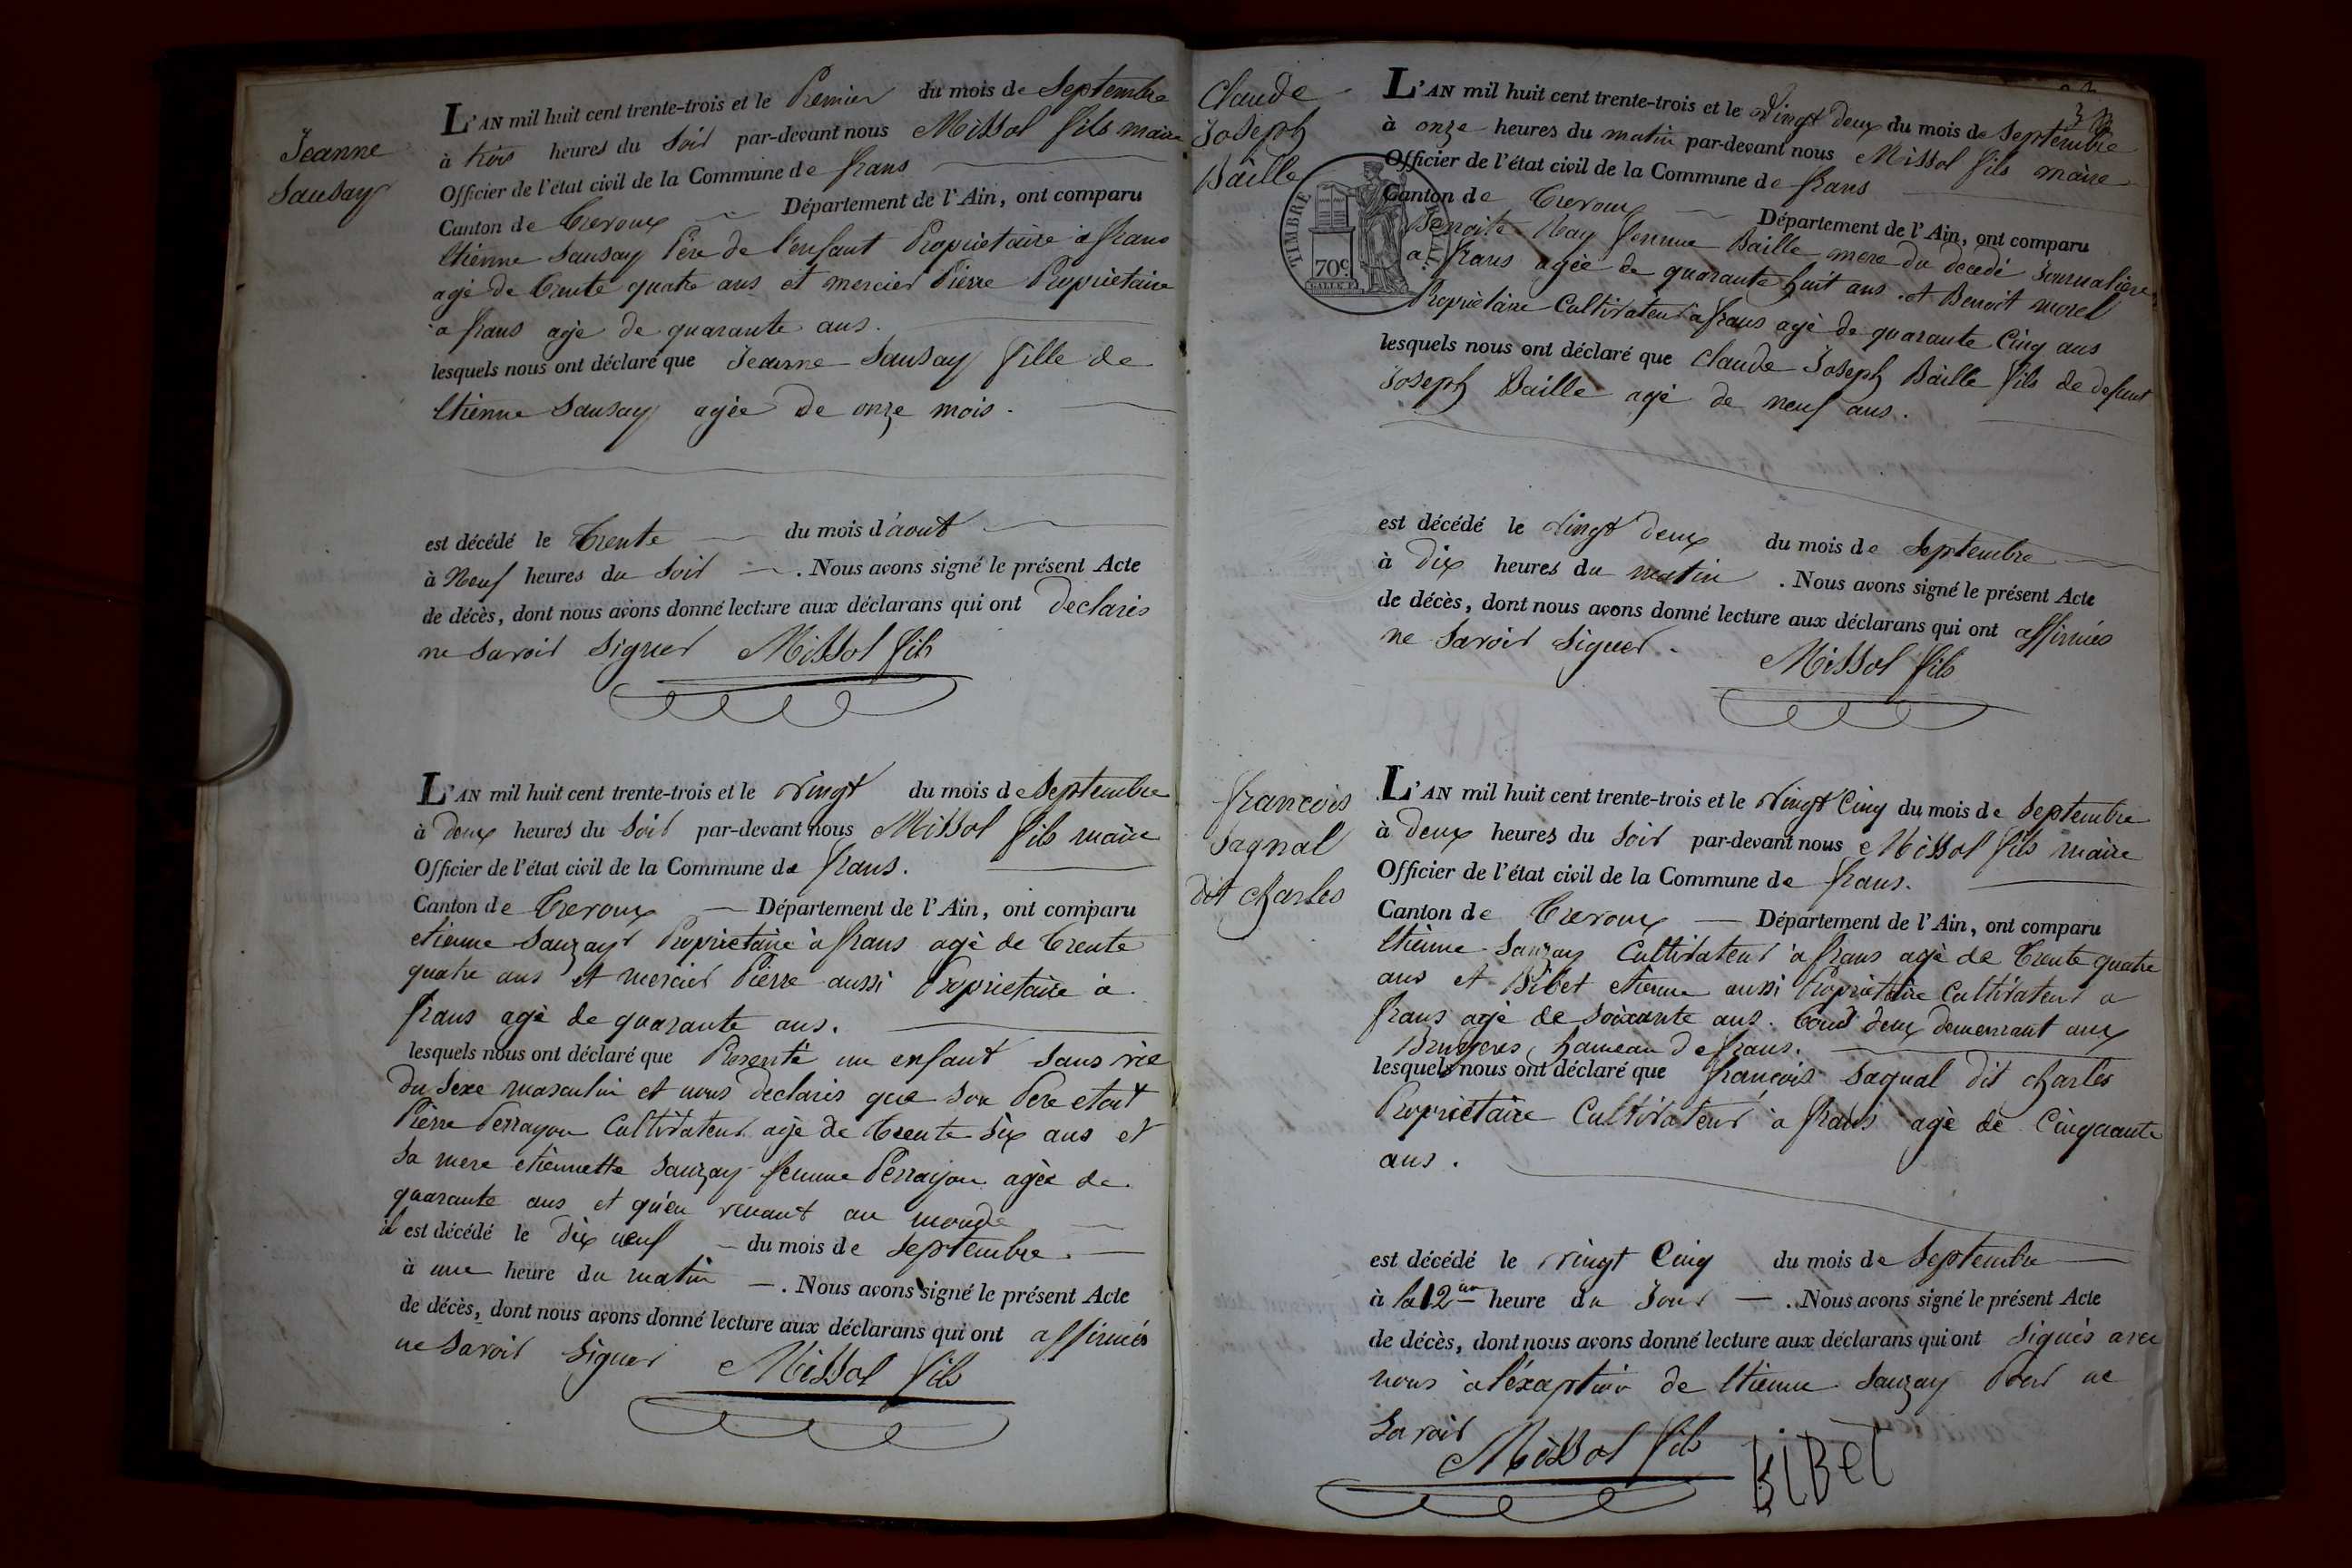 Jeanne
Sausay
L'AN mil huit cent trente-trois et le Premier du mois de Septembre
à trois heures du Soir par-devant nous Missol fils maire
Officier de l'état civil de la Commune de frans
Canton de Trevoux Département de l'Ain, ont comparu
Etienne Sausay Père de l'enfant Propriétaire à frans
agé de trente quatre ans et mercier Pierre Propriétaire
a frans agé de quarante ans.
lesquels nous ont déclaré que Jeanne Sausay fille de
Etienne Sausay agée de onze mois.
est décédé le trente du mois d'aout
à Neuf heures du Soir . Nous avons signé le présent Acte
de décès, dont nous avons donné lecture aux déclarans qui ont declarés
ne savoir signer Missol fils
L'AN mil huit cent trente-trois et le vingt du mois de Septembre
à deux heures du Soir par-devant nous Missol fils maire
Officier de l'état civil de la Commune de frans.
Canton de Trevoux Département de l'Ain, ont comparu
etienne Sauzay Propriétaire à frans agé de trente
quatre ans et mercier Pierre aussi Propriétaire à
frans agé de quarante ans.
lesquels nous ont déclaré que Presenté un enfant sans vie
du Sexe masculin et nous declarés que son Pere etoit
Pierre Perrayon Cultivateur agé de trente six ans et
sa mere etiennette Sauzay femme Perrayon agée de
quarante ans et qu'en venant au monde
il est décédé le dix neuf du mois de Septembre.
à une heure du matin . Nous avons signé le présent Acte
de décès, dont nous avons donné lecture aux déclarans qui ont affirmés
ne savoir signer Missol fils
Claude
Joseph
Baille
TIMBRE ROYAL
70c
L'AN mil huit cent trente-trois et le vingt deux du mois de Septembre
à onze heures du matin par-devant nous Missol fils maire
Officier de l'état civil de la Commune de frans
Canton de Trevoux Département de l'Ain, ont comparu
Benoite Nay femme Baille mere du decedé Journalière
a frans agée de quarante huit ans. et Benoit morel
Propriétaire Cultivateur à frans agé de quarante Cinq ans
lesquels nous ont déclaré que Claude Joseph Baille fils de defunt
Joseph Baille agé de neuf ans.
est décédé le vingt deux du mois de Septembre
à Dix heures du matin . Nous avons signé le présent Acte
de décès, dont nous avons donné lecture aux déclarans qui ont affirmés
ne savoir signer. Missol fils
francois
Sagnal
dit charles
L'AN mil huit cent trente-trois et le vingt Cinq du mois de Septembre
à deux heures du Soir par-devant nous Missol fils maire
Officier de l'état civil de la Commune de frans.
Canton de Trevoux Département de l'Ain, ont comparu
Etienne Sauzay Cultivateur à frans agé de trente quatre
ans et Bibet etienne aussi Propriétaire Cultivateur a
frans agé de soixante ans. tous deux demeurant aux
Bruyeres, hameau de frans.
lesquels nous ont déclaré que françois Sagnal dit charles
Propriétaire Cultivateur à frans agé de Cinquante
ans.
est décédé le vingt Cinq du mois de Septembre
à la 12me heure du Jour . Nous avons signé le présent Acte
de décès, dont nous avons donné lecture aux déclarans qui ont signés avec
nous à l'éxaption de Etienne Sauzay Pour ne
savoir Missol fils BiBet